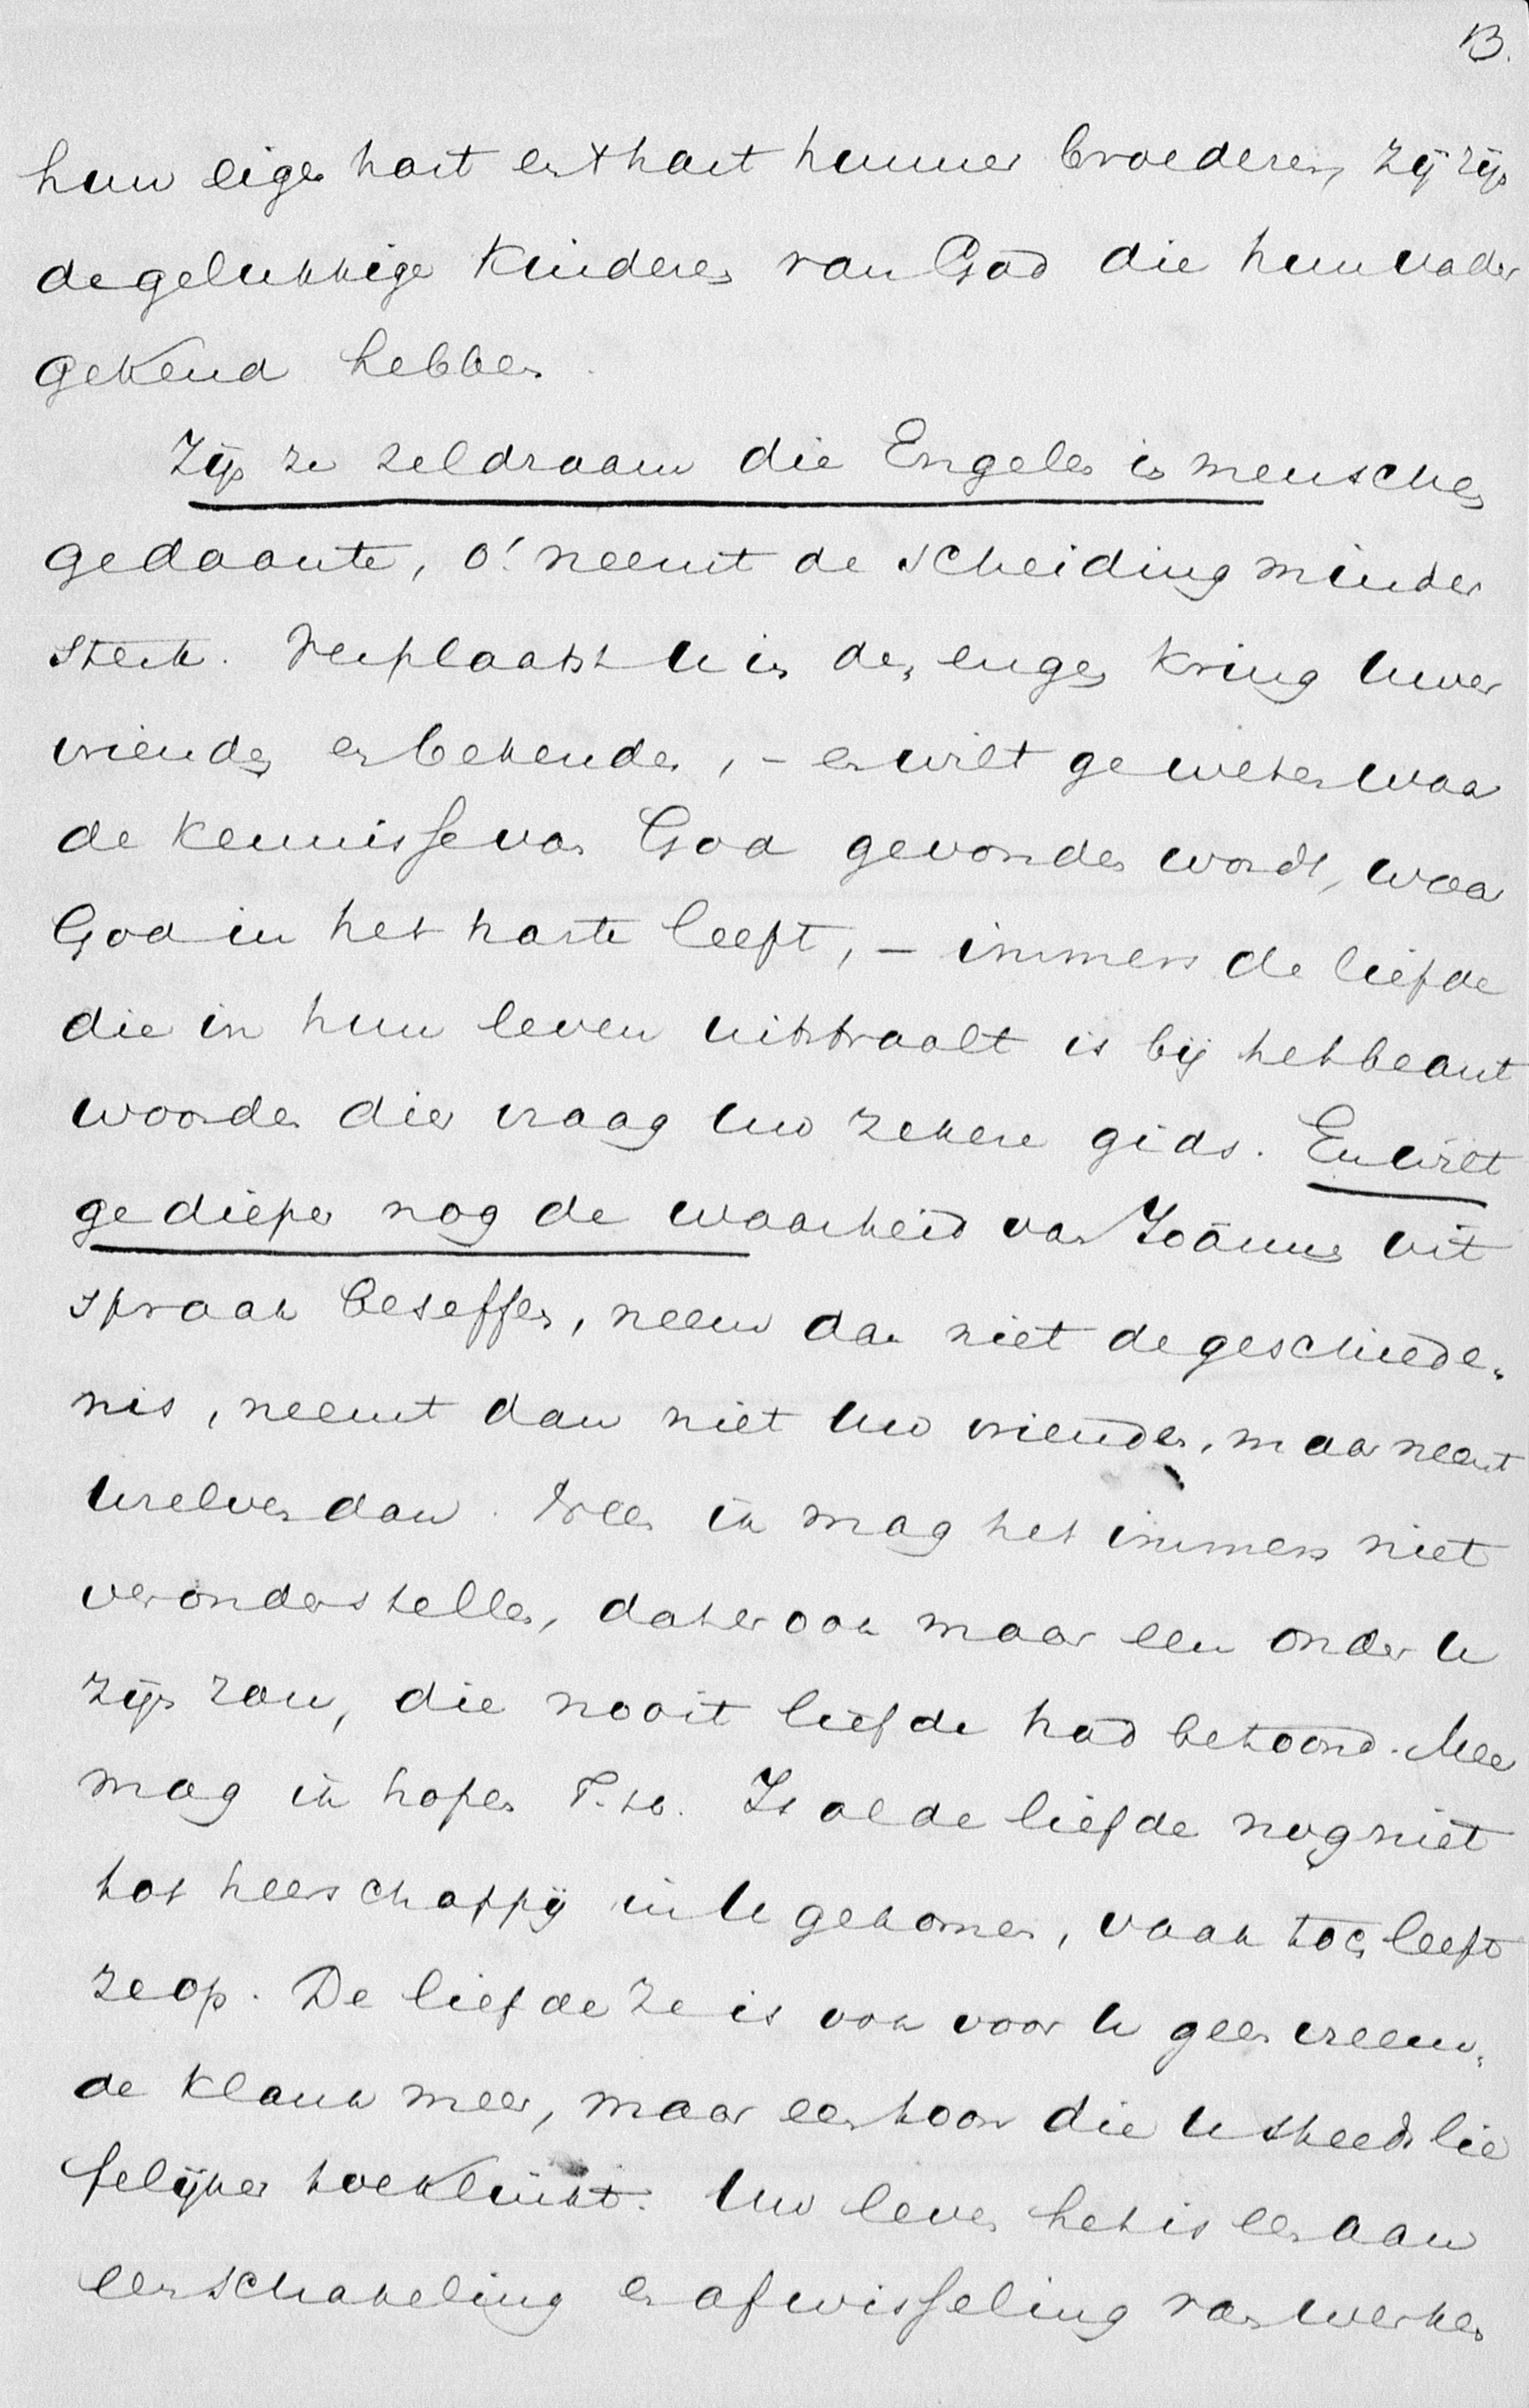 13.
hun eigen hart en 't hart hunner broederen, zij zijn
de gelukkige kinderen van God die hun vader
gekend hebben.
Zijn ze zeldzaam die Engelen in menschen
gedaante, o! neemt de scheiding minder
sterk. Verplaatst U in den engen kring Uwer
vrienden en bekenden, – en wilt ge weten waar
de kennisse van God gevonden wordt, waar
God in het harte leeft, – immers de liefde
die in hun leven uitstraalt is bij het beant
woorden dier vraag Uw zekere gids. En wilt
ge dieper nog de waarheid van Joännes uit
spraak beseffen, neem dan niet de geschiede-
nis, neemt dan niet Uw vrienden, maar neemt
Uzelven dan. Neen ik mag het immers niet
veronderstellen, dat er ook maar een onder U
zijn zou, die nooit liefde had betoond. Meer
mag ik hopen T. H. Is al de liefde nog niet
tot heerschappij in U gekomen, vaak toch leeft
ze op. De liefde ze is ook voor U geen vreem-
de klank meer, maar een toon die U steeds lie
felijker toeklinkt. Uw leven het is een aan
eenschakeling en afwisseling van werken